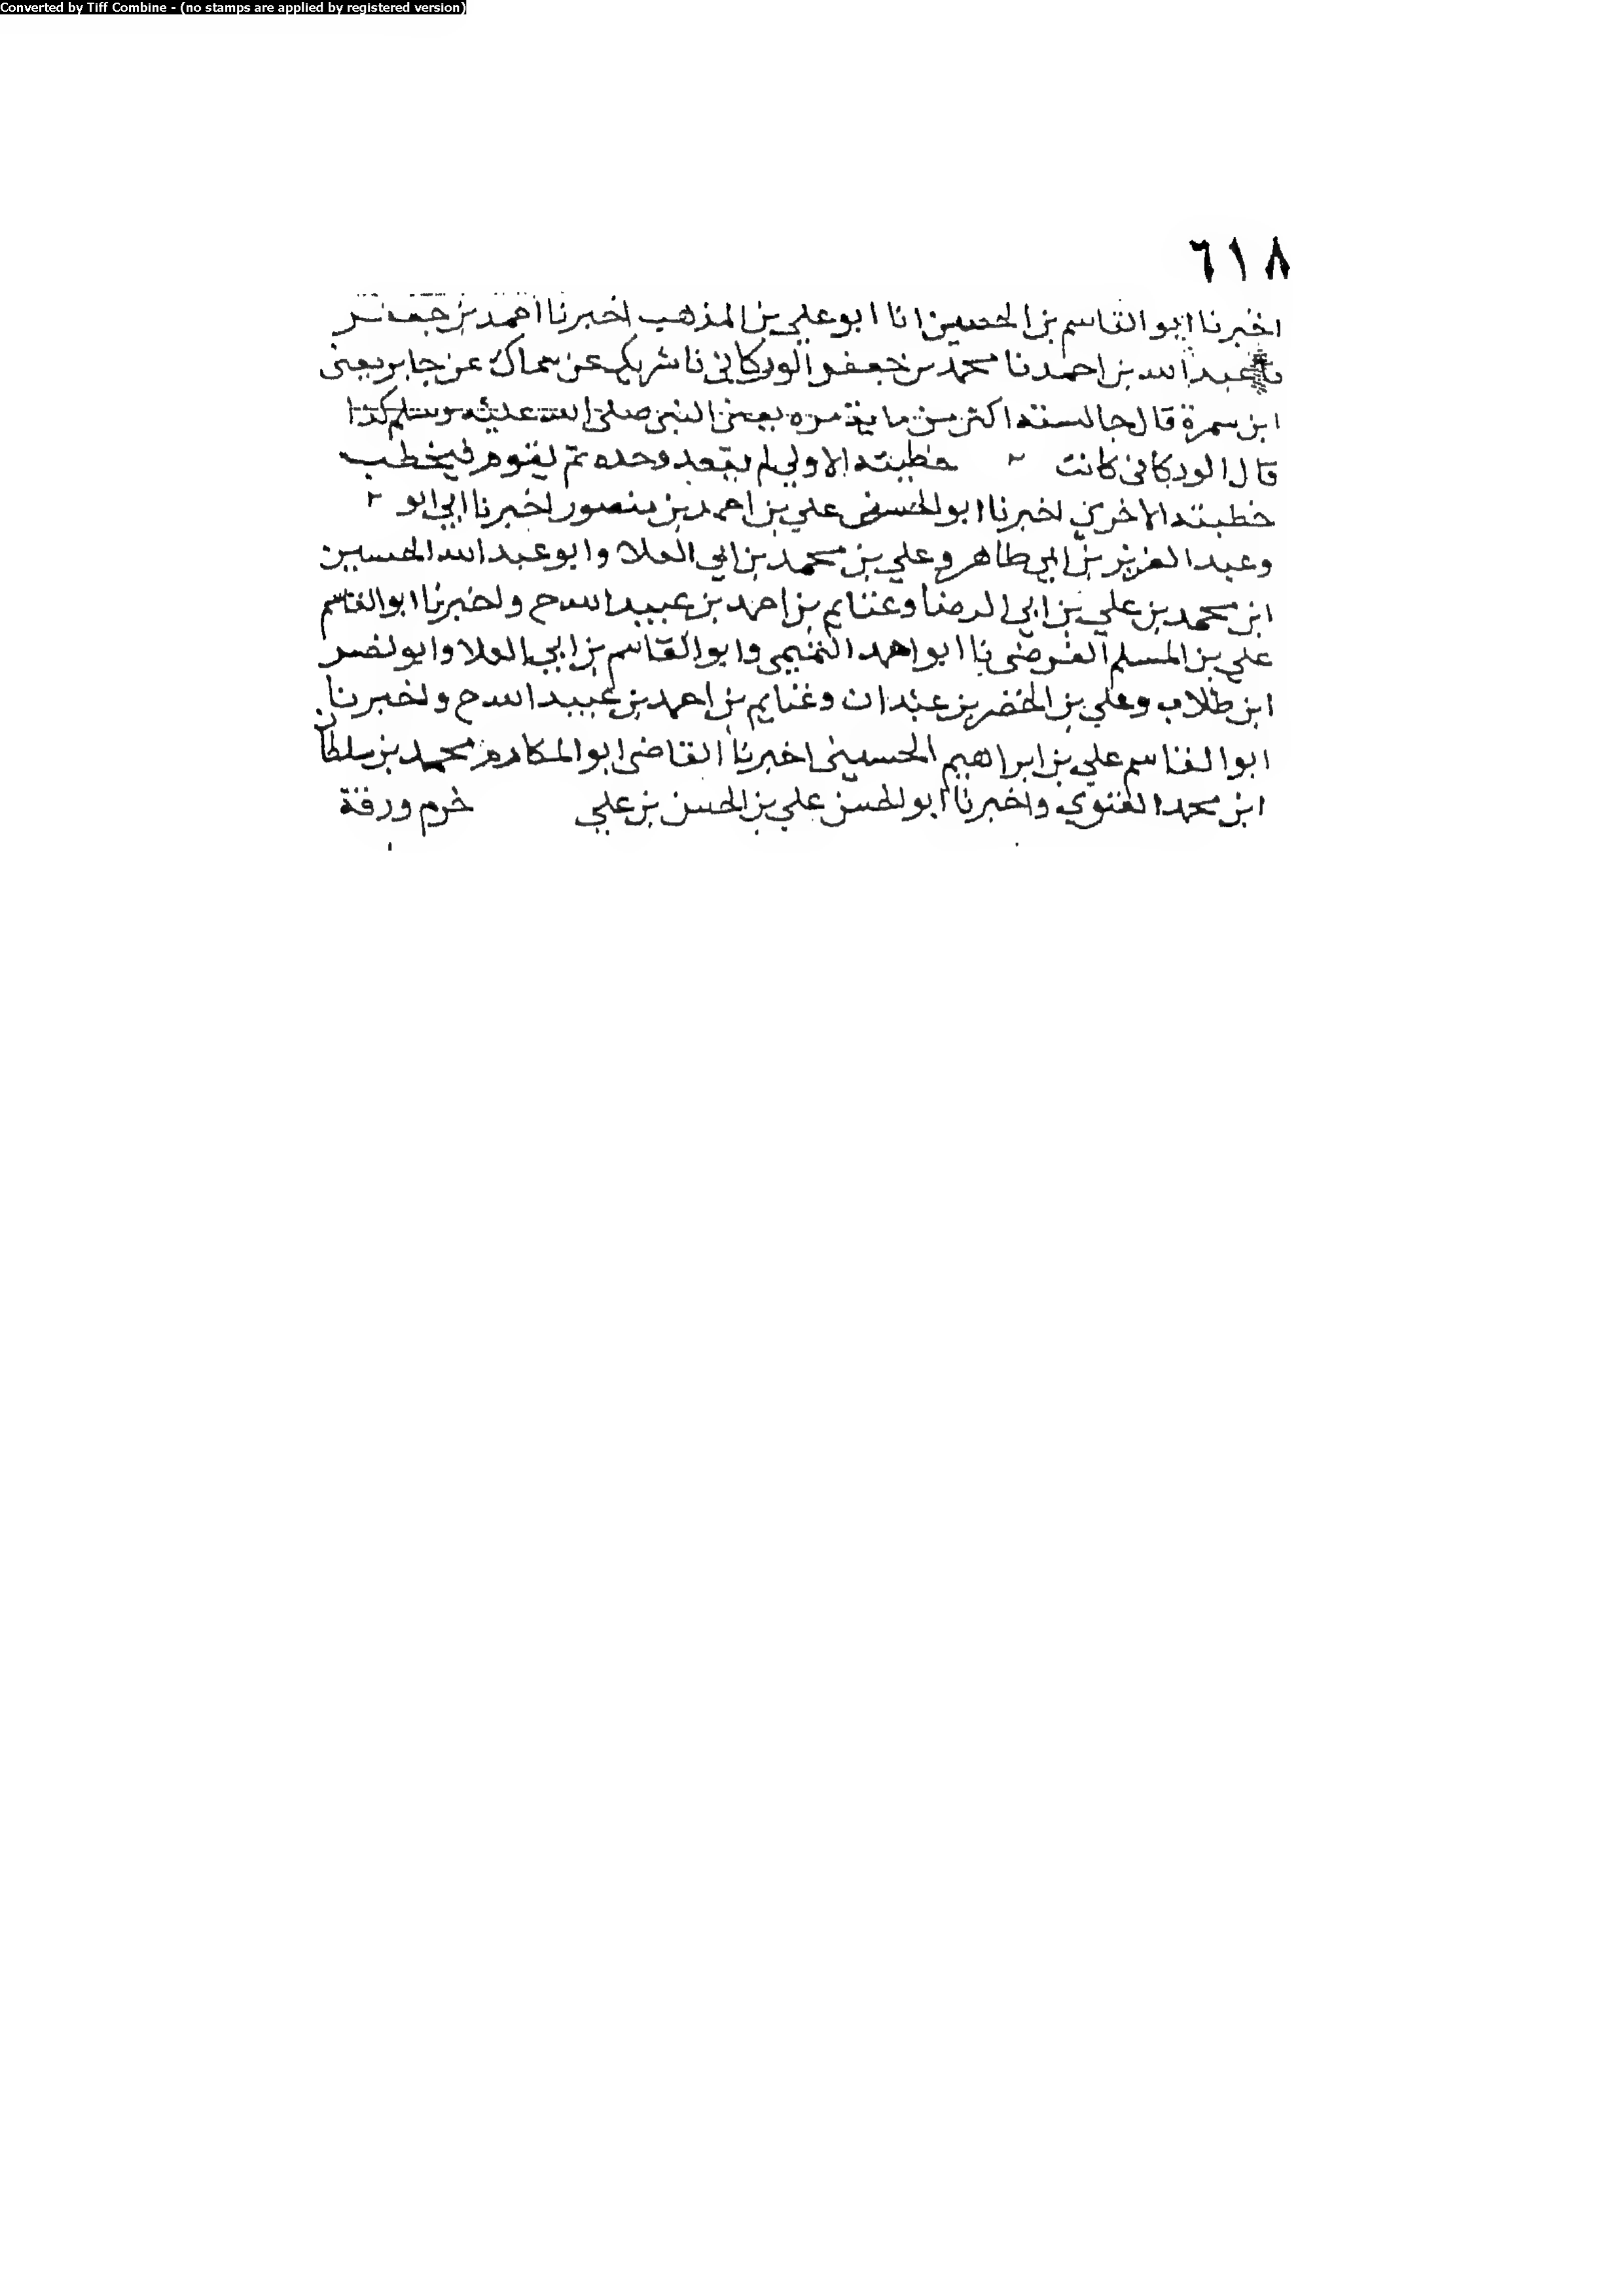 Converted by Tiff Combine - (no stamps are applied by registered version)
٦١٨
اخبرنا ابو القاسم بن الحصين انا ابو علي بن المذهب اخبرنا احمد بن جعفر
عبد الله بن احمد نا محمد بن جعفر الوركاني نا شريك عن سماك عن جابر يعني
ابن سمرة قال جالسته اكثر من ماية مره يعني النبي صلى الله عليه وسلم كذا
قال الوركاني كانت خطبته الاولي لم يقعد وحده ثم يقوم فيخطب
خطبته الاخري اخبرنا ابو الحسن علي بن احمد بن منصور اخبرنا ابي ابو
وعبد العزيز بن ابي طاهر وعلي بن محمد بن ابي العلا وابو عبد الله الحسين
ابن محمد بن علي بن ابي الرضا وغنايم بن احمد بن عبيد الله ح واخبرنا ابو القاسم
علي بن المسلم الفرضي نا ابو احمد التميمي وابو القاسم بن ابي العلا وابو نصر
ابن طلاب وعلي بن الخضر بن عبدان وغنايم بن احمد بن عبيد الله ح واخبرنا
ابو القاسم علي بن ابراهيم الحسيني اخبرنا القاضي ابو المكارم محمد بن سلطان
ابن محمد الغنوي واخبرنا ابو الحسن علي بن الحسن بن علي خرم ورقة